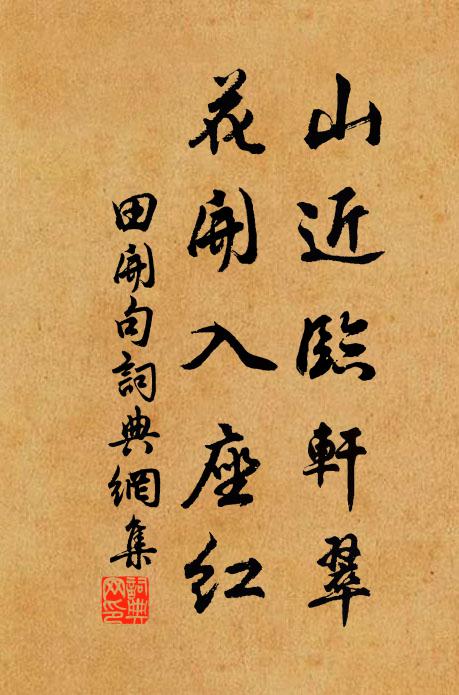 山近臨軒翠
花開入座紅
田開句詞典網集
詞典
网印